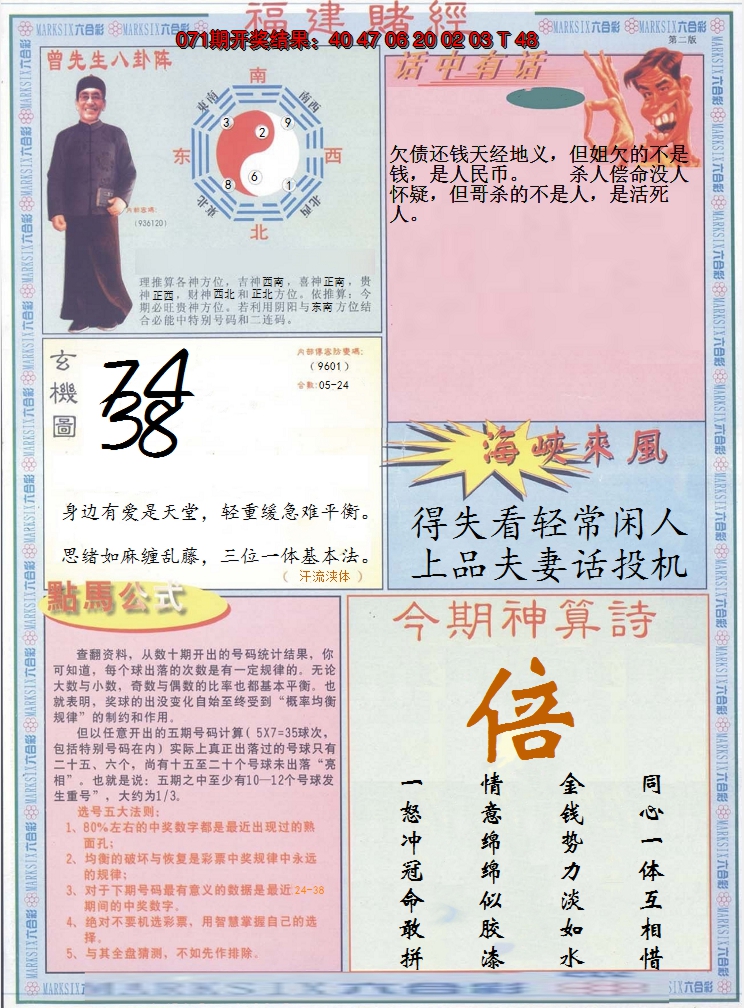 福建賭經
071期开奖结果：40 47 06 20 02 03 T 48
MARKSIX六合彩
第二版
曾先生八卦阵
南
東南
西南
3 9
2
东 西
6
8 1
東北
西北
北
內部密碼：
(936120)
理推算各神方位，吉神西南，喜神正南，贵
神正西，财神西北和正北方位。依推算：今
期必旺贵神方位。若利用阴阳与东南方位结
合必能中特别号码和二连码。
话中有话
欠债还钱天经地义，但姐欠的不是
钱，是人民币。 杀人偿命没人
怀疑，但哥杀的不是人，是活死
人。
玄機圖
74
38
(9601)
合數:05-24
身边有爱是天堂，轻重缓急难平衡。
思绪如麻缠乱藤，三位一体基本法。
（ 汗流浃体 ）
海峽來風
得失看轻常闲人
上品夫妻话投机
點馬公式
查翻资料，从数十期开出的号码统计结果，你
可知道，每个球出落的次数是有一定规律的。无论
大数与小数，奇数与偶数的比率也都基本平衡。也
就表明，奖球的出没变化自始至终受到“概率均衡
规律”的制约和作用。
但以任意开出的五期号码计算( 5X7=35球次，
包括特别号码在内) 实际上真正出落过的号球只有
二十五、六个，尚有十五至二十个号球未出落“亮
相”。也就是说：五期之中至少有10—12个号球发
生重号”，大约为1/3。
选号五大法则：
1、80%左右的中奖数字都是最近出现过的熟
面孔；
2、均衡的破坏与恢复是彩票中奖规律中永远
的规律；
3、对于下期号码最有意义的数据是最近24-38
期间的中奖数字。
4、绝对不要机选彩票，用智慧掌握自己的选
择。
5、与其全盘猜测，不如先作排除。
今期神算詩
倍
同心一体互相惜
金钱势力淡如水
情意绵绵似胶漆
一怒冲冠命敢拼